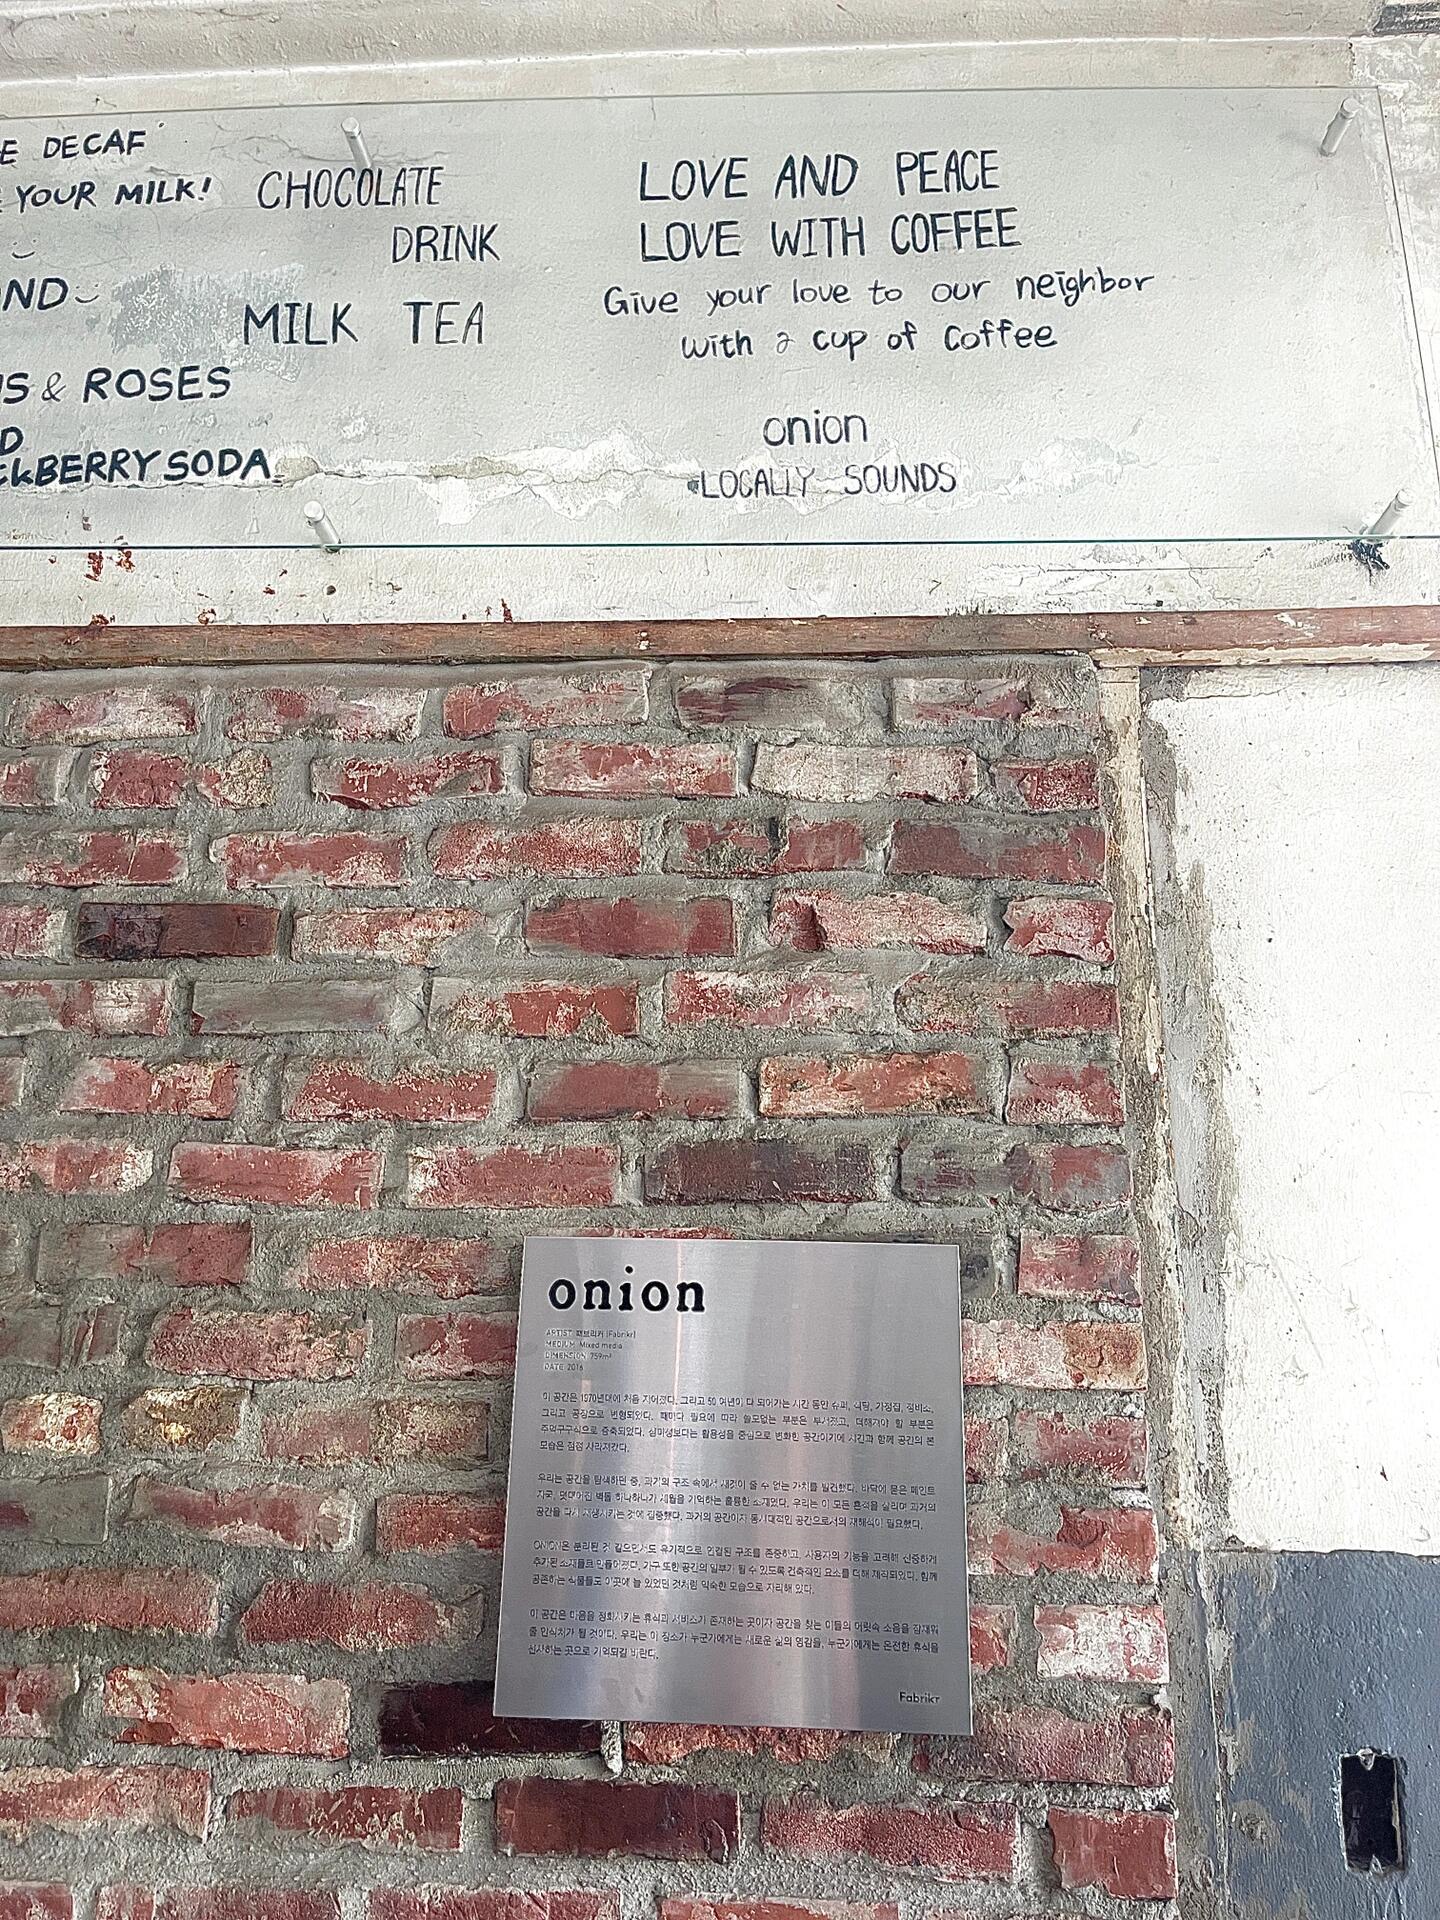 E DECAF
YOUR MILK!
ND
S & ROSES
D
CKBERRY SODA
CHOCOLATE
DRINK
MILK TEA
LOVE AND PEACE
LOVE WITH COFFEE
Give your love to our neighbor
with a cup of coffee
onion
LOCALLY SOUNDS
onion
ARTIST 패브리커 (Fabrikr)
MEDIUM Mixed media
DIMENSION 759m²
DATE 2016
이 공간은 1970년대에 처음 지어졌다. 그리고 50 여년이 다 되어가는 시간 동안 슈퍼, 식당, 가정집, 정비소,
그리고 공장으로 변형되었다. 때마다 필요에 따라 쓸모없는 부분은 부서졌고, 더해져야 할 부분은
주먹구구식으로 증축되었다. 심미성보다는 활용성을 중심으로 변화한 공간이기에 시간과 함께 공간의 본
모습은 점점 사라져갔다.
우리는 공간을 탐색하던 중, 과거의 구조 속에서 새것이 줄 수 없는 가치를 발견했다. 바닥에 묻은 페인트
자국, 덧대어진 벽돌 하나하나가 세월을 기억하는 훌륭한 소재였다. 우리는 이 모든 흔적을 살리며 과거의
공간을 다시 재생시키는 것에 집중했다. 과거의 공간이자 동시대적인 공간으로서의 재해석이 필요했다.
ONION은 분리된 것 같으면서도 유기적으로 연결된 구조를 존중하고, 사용자의 기능을 고려해 신중하게
추가된 소재들로 만들어졌다. 가구 또한 공간의 일부가 될 수 있도록 건축적인 요소를 더해 제작되었다. 함께
공존하는 식물들도 이곳에 늘 있었던 것처럼 익숙한 모습으로 자리해 있다.
이 공간은 마음을 정화시키는 휴식과 서비스가 존재하는 곳이자 공간을 찾는 이들의 머릿속 소음을 잠재워
줄 안식처가 될 것이다. 우리는 이 장소가 누군가에게는 새로운 삶의 영감을, 누군가에게는 온전한 휴식을
선사하는 곳으로 기억되길 바란다.
Fabrikr